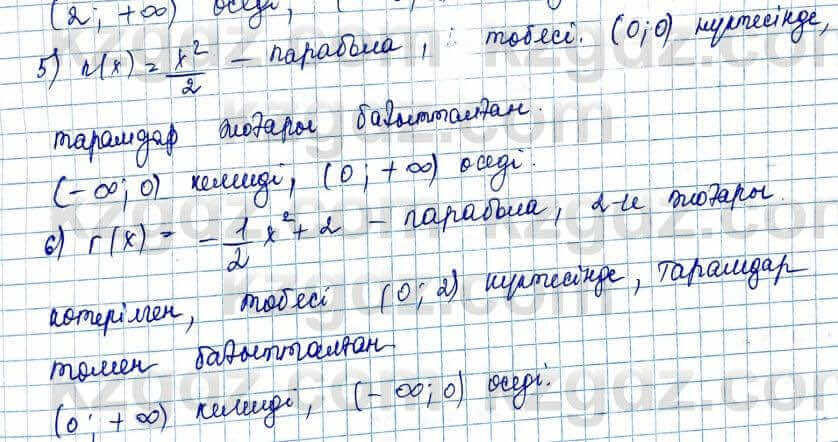 (2; +∞) өседі,
5) r(x) = x²/2 – парабола, төбесі. (0;0) нүктесінде,
тарамдар жоғары бағытталған.
(-∞; 0) кемиді, (0; +∞) өседі.
6) r(x) = -1/2 x² + 2 – парабола, 2-ге жоғары
көтерілген, төбесі (0; 2) нүктесінде, тарамдар
төмен бағытталған
(0; +∞) кемиді, (-∞; 0) өседі.
kzgdz.com